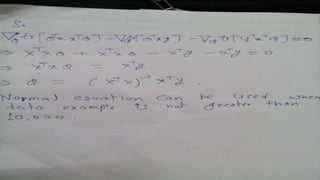 So
∇θ tr[θᵀxᵀxθ] - ∇θ[θᵀxᵀy] - ∇θ tr[yᵀxθ] = 0
⇒ xᵀxθ + xᵀxθ - xᵀy - xᵀy = 0.
⇒ xᵀxθ = xᵀy
⇒ θ = (xᵀx)⁻¹ xᵀy.
Normal equation can be used when
data example is not greater than
10,000.